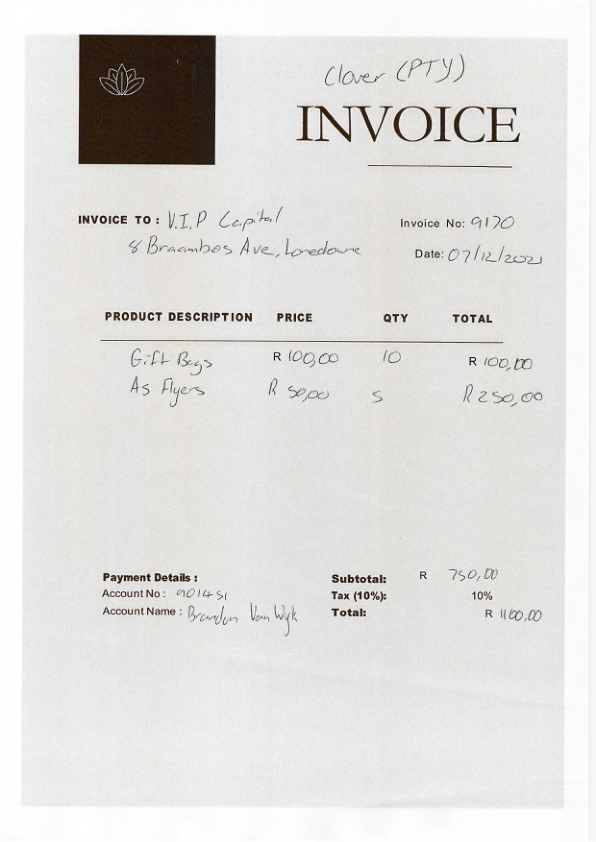 Clover (PTY)
INVOICE
INVOICE TO : V.I.P Capital
8 Braambos Ave, Lonsdowne
Invoice No: 9170
Date: 07/12/2021
PRODUCT DESCRIPTION PRICE QTY TOTAL
Gift Bags R 100,00 10 R 100,00
A5 Flyers R 50,00 5 R 250,00
Payment Details :
Account No : 901451
Account Name : Brandon Van Wyk
Subtotal: R 750,00
Tax (10%): 10%
Total: R 1100,00